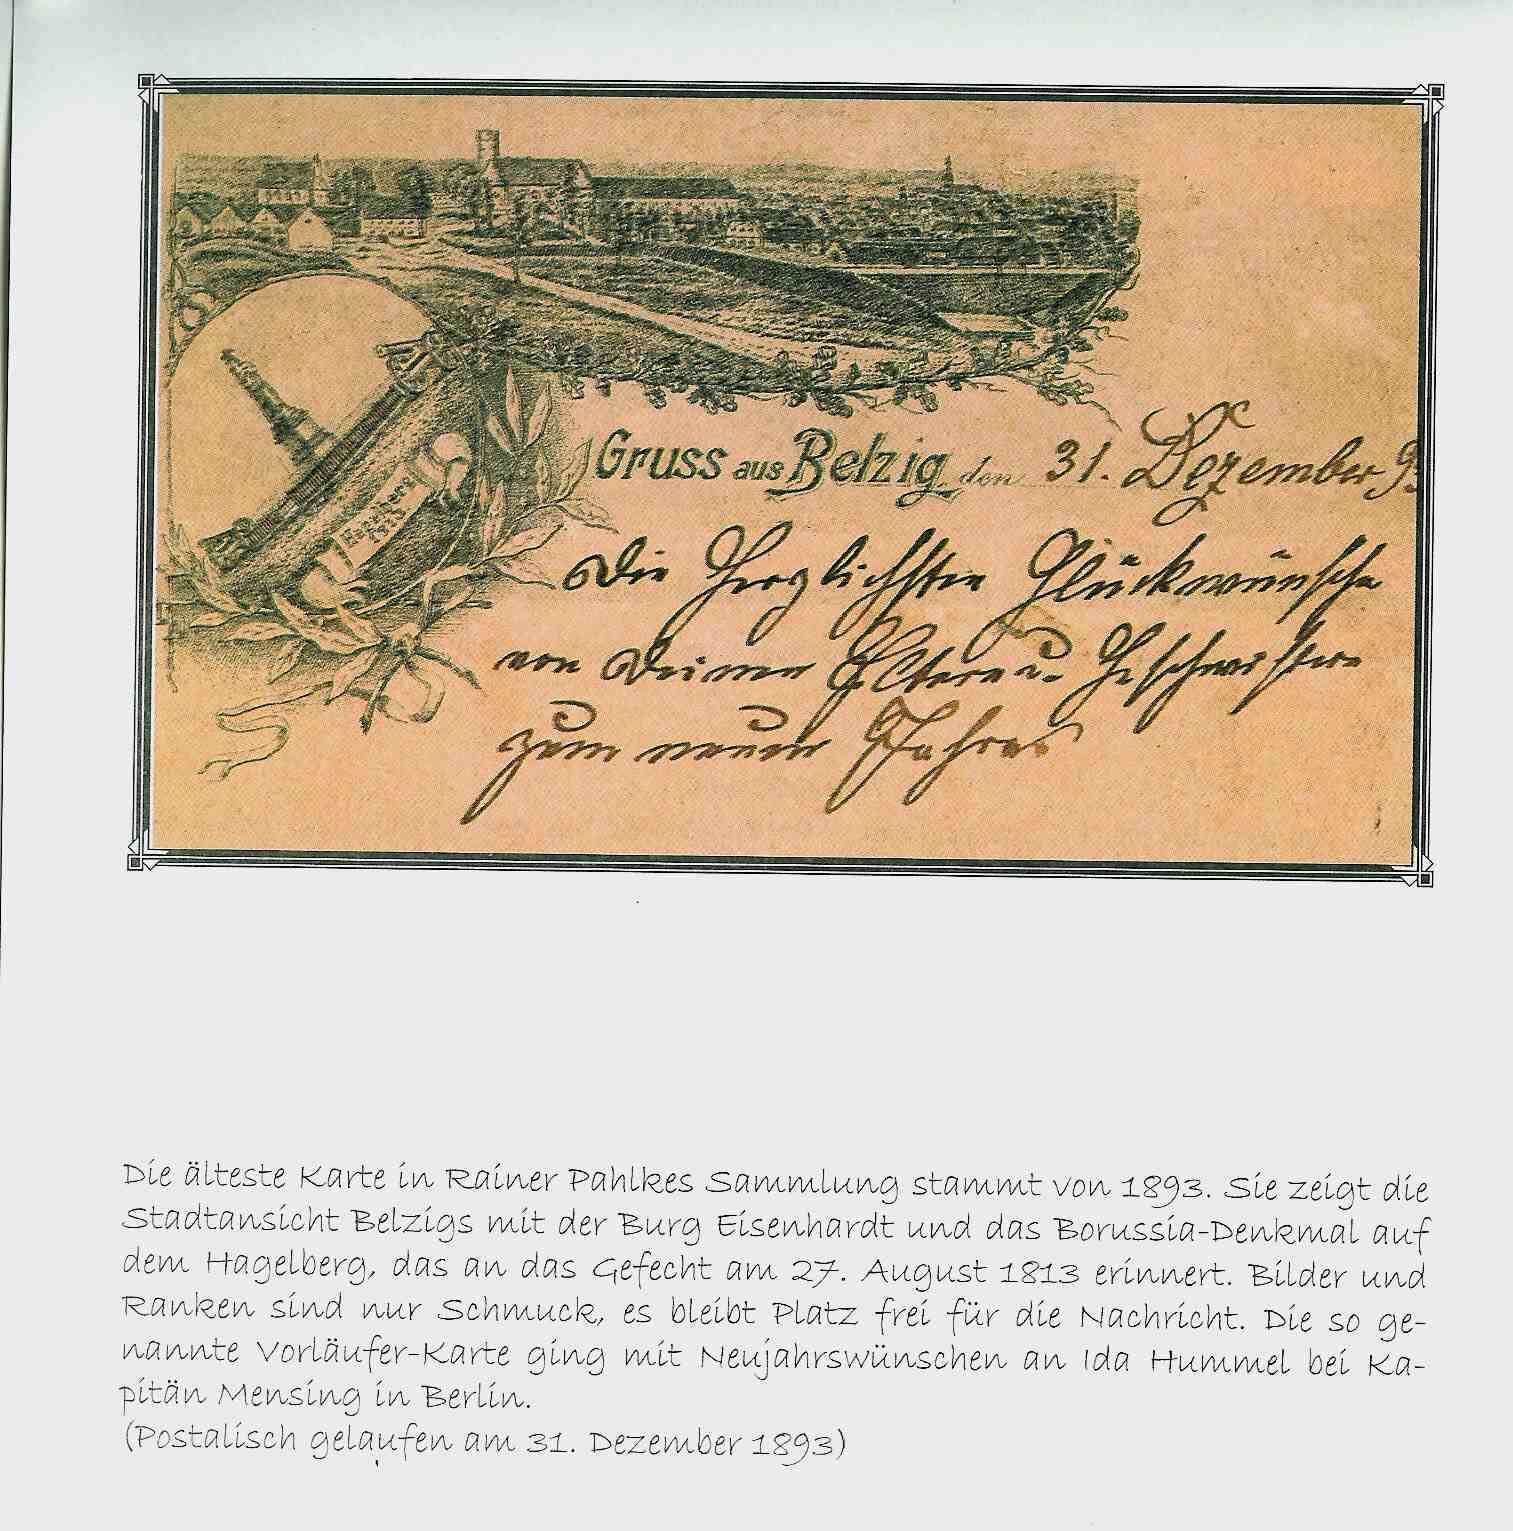 Gruss aus Belzig den 31. Dezember 93
Hagelberg
1813
Die Herzlichsten Glückwünsche
von Deinen Eltern u. Geschwistern
zum neuen Jahre
Die älteste Karte in Rainer Pahlkes Sammlung stammt von 1893. Sie zeigt die
Stadtansicht Belzigs mit der Burg Eisenhardt und das Borussia-Denkmal auf
dem Hagelberg, das an das Gefecht am 27. August 1813 erinnert. Bilder und
Ranken sind nur Schmuck, es bleibt Platz frei für die Nachricht. Die so ge-
nannte Vorläufer-Karte ging mit Neujahrswünschen an Ida Hummel bei Ka-
pitän Mensing in Berlin.
(Postalisch gelaufen am 31. Dezember 1893)